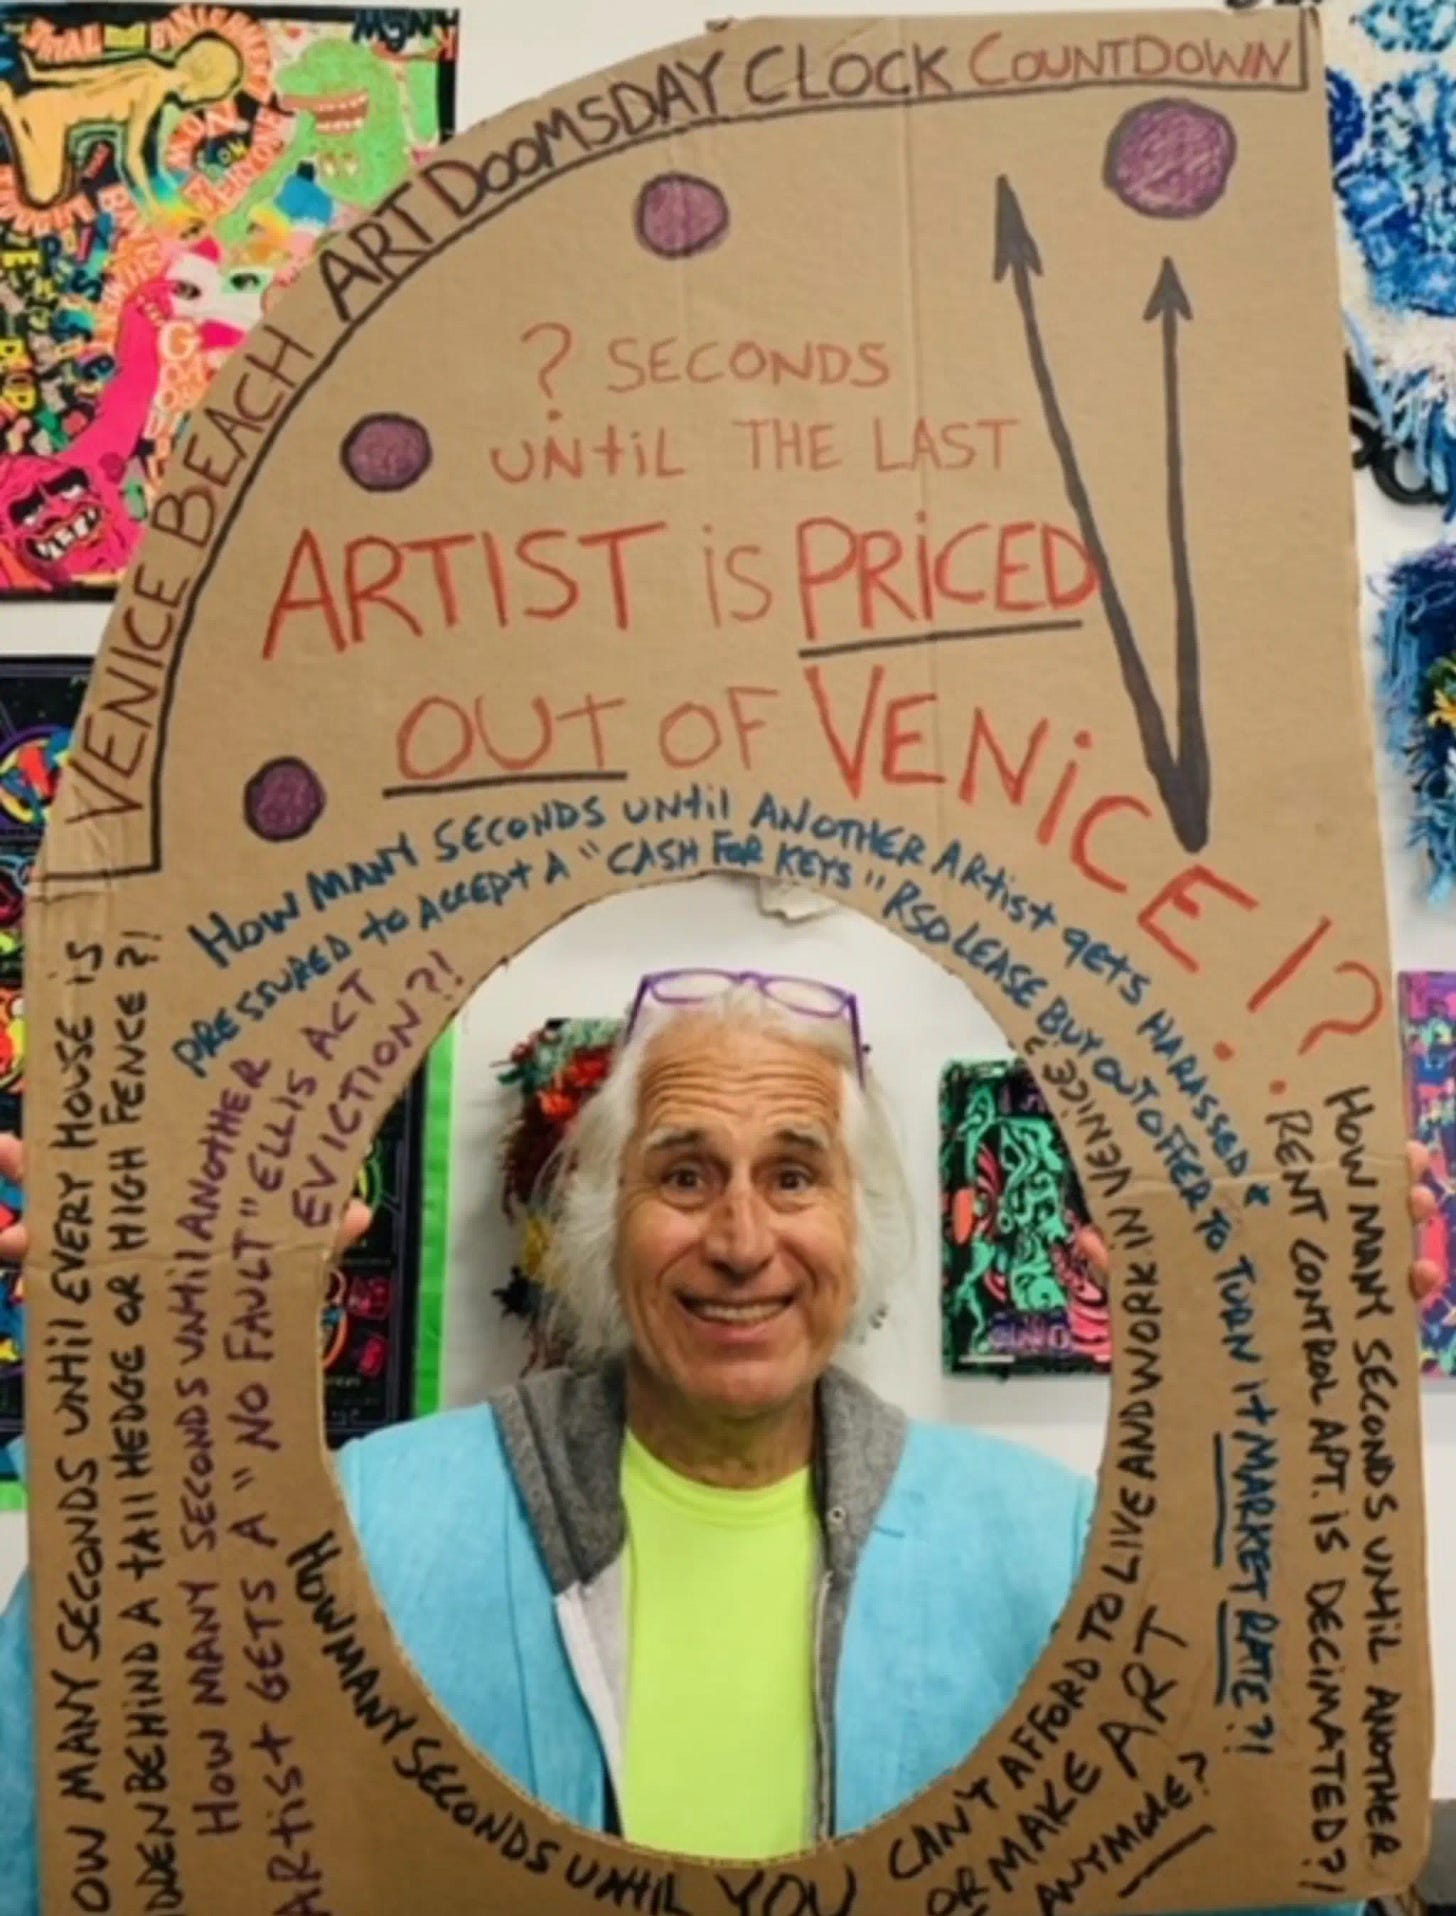 VENICE BEACH ART DOOMSDAY CLOCK COUNTDOWN
? SECONDS
UNtiL THE LAST
ARTIST is PRiCED
OUT OF VENiCE!?
HOW MANY SECONDS UNtil ANOTHER ARtist gets HARASSED &
PRESSURED to ACCEPt A "CASH FOR KEYS" RSO LEASE BUYOUT OFFER TO TURN it MARKET RATE?!
OW MANY SECONDS UNtil EVERY HOUSE iS
DDEN BEHIND A tAll HEDGE OR HIGH FENCE?!
HOW MANY SECONDS UNtil ANOTHER
ARtist GETS A "NO FAULT" ELLIS ACT
EVICTION?!
HOW MANY SECONDS UNtil YOU CAN'T AFFORD TO LIVE AND WORK IN VENICE?
OR MAKE ART
ANYMORE?
HOW MANY SECONDS UNtil ANOTHER
RENT CONTROL APT. iS DECiMATED?!